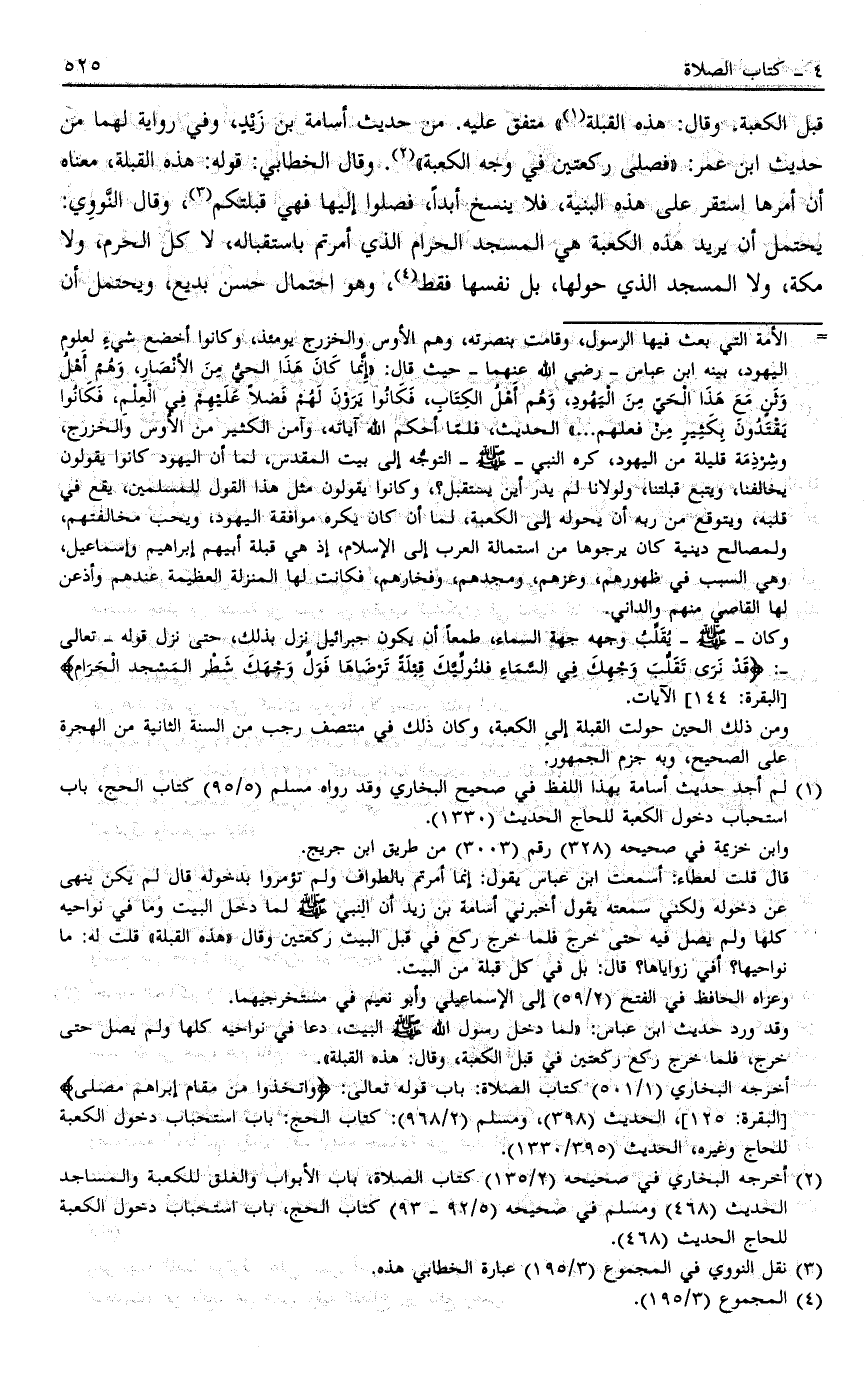 ٤ - كتاب الصلاة ٥٢٥
قبل الكعبة، وقال: هذه القبلة(١)» متفق عليه. من حديث أسامة بن زَيْدٍ، وفي رواية لهما من
حديث ابن عمر: «فصلى ركعتين في وجه الكعبة»(٢). وقال الخطابي: قوله: هذه القبلة، معناه
أن أمرها استقر على هذه البنية، فلا ينسخ أبداً، فصلوا إليها فهي قبلتكم(٣)، وقال النَّووِي:
يحتمل أن يريد هذه الكعبة هي المسجد الحرام الذي أمرتم باستقباله، لا كل الحرم، ولا
مكة، ولا المسجد الذي حولها، بل نفسها فقط(٤)، وهو احتمال حسن بديع، ويحتمل أن
= الأمة التي بعث فيها الرسول، وقامت بنصرته، وهم الأوس والخزرج يومئذ، وكانوا أخضع شيءٍ لعلوم
اليهود، بينه ابن عباس - رضي الله عنهما - حيث قال: «إِنَّما كَانَ هَذَا الحيُّ مِنَ الأَنْصَارِ، وَهُمْ أَهْلُ
وَثَنٍ مَعَ هَذَا الْحَيِّ مِنَ الْيَهُودِ، وَهُم أَهْلُ الكِتَابِ، فَكَانُوا يَرَوْنَ لَهُمْ فَضلاً عَلَيْهِمْ فِي الْعِلْمِ، فَكَانُوا
يَقْتَدُونَ بِكَثِيرٍ مِنْ فعلهم...» الحديث، فلمَّا أحكم الله آياته، وآمن الكثير من الأوس والخزرج،
وشِرْذِمَة قليلة من اليهود، كره النبي - ﷺ - التوجُّه إلى بيت المقدس، لما أن اليهود كانوا يقولون
يخالفنا، ويتبع قبلتنا، ولولانا لم يدر أين يستقبل؟، وكانوا يقولون مثل هذا القول للمسلمين، يقع في
قلبه، ويتوقع من ربه أن يحوله إلى الكعبة، لما أن كان يكره موافقة اليهود، ويحب مخالفتهم،
ولمصالح دينية كان يرجوها من استمالة العرب إلى الإسلام، إذ هي قبلة أبيهم إبراهيم وإسماعيل،
وهي السبب في ظهورهم، وعزهم، ومجدهم، وفخارهم، فكانت لها المنزلة العظيمة عندهم وأذعن
لها القاصي منهم والداني.
وكان - ﷺ - يُقَلِّبُ وجهه جهة السماء، طمعاً أن يكون جبرائيل نزل بذلك، حتى نزل قوله - تعالى
-: ﴿قَدْ نَرَى تَقَلُّبَ وَجْهِكَ فِي السَّمَاءِ فلنُولِّيَنَّكَ قِبْلَةً تَرْضَاهَا فَوَلِّ وَجْهَكَ شَطْر المَسْجد الْحَرَامِ﴾
[البقرة: ١٤٤] الآيات.
ومن ذلك الحين حولت القبلة إلى الكعبة، وكان ذلك في منتصف رجب من السنة الثانية من الهجرة
على الصحيح، وبه جزم الجمهور.
(١) لم أجد حديث أسامة بهذا اللفظ في صحيح البخاري وقد رواه مسلم (٩٥/٥) كتاب الحج، باب
استحباب دخول الكعبة للحاج الحديث (١٣٣٠).
وابن خزيمة في صحيحه (٣٢٨) رقم (٣٠٠٣) من طريق ابن جريج.
قال قلت لعطاء: أسمعت ابن عباس يقول: إنما أمرتم بالطواف ولم تؤمروا بدخوله قال لم يكن ينهى
عن دخوله ولكني سمعته يقول أخبرني أسامة بن زيد أن النبي ﷺ لما دخل البيت وما في نواحيه
كلها ولم يصل فيه حتى خرج فلما خرج ركع في قبل البيت ركعتين وقال «هذه القبلة» قلت له: ما
نواحيها؟ أفي زواياها؟ قال: بل في كل قبلة من البيت.
وعزاه الحافظ في الفتح (٥٩/٢) إلى الإسماعيلي وأبو نعيم في مستخرجيهما.
وقد ورد حديث ابن عباس: «لما دخل رسول الله ﷺ البيت، دعا في نواحيه كلها ولم يصل حتى
خرج، فلما خرج ركع ركعتين في قبل الكعبة، وقال: هذه القبلة».
أخرجه البخاري (٥٠١/١) كتاب الصلاة: باب قوله تعالى: ﴿واتخذوا من مقام إبراهم مصلى﴾
[البقرة: ١٢٥]، الحديث (٣٩٨)، ومسلم (٩٦٨/٢): كتاب الحج: باب استحباب دخول الكعبة
للحاج وغيره، الحديث (١٣٣٠/٣٩٥).
(٢) أخرجه البخاري في صحيحه (١٣٥/٢) كتاب الصلاة، باب الأبواب والغلق للكعبة والمساجد
الحديث (٤٦٨) ومسلم في صحيحه (٩٢/٥ - ٩٣) كتاب الحج، باب استحباب دخول الكعبة
للحاج الحديث (٤٦٨).
(٣) نقل النووي في المجموع (١٩٥/٣) عبارة الخطابي هذه.
(٤) المجموع (١٩٥/٣).